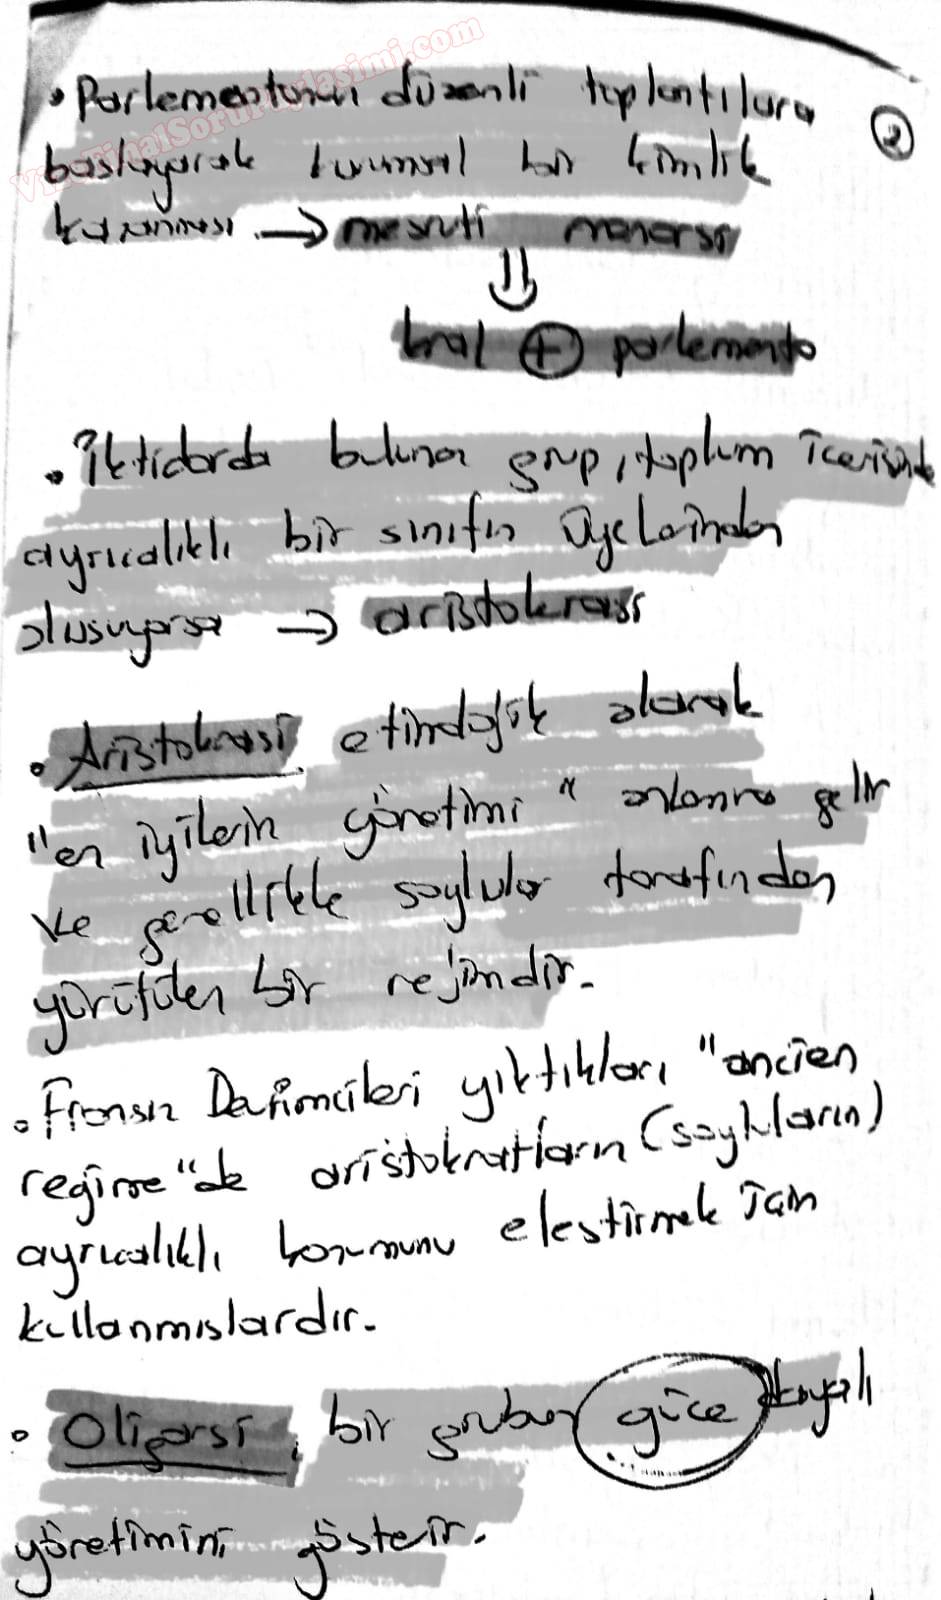 VizeFinalSoruPaylasimi.com
• Parlementonun düzenli toplantılara
②
başlayarak kurumsal bir kimlik
kazanması → mesruti monarşi
⇓
kral ⊕ parlemento
• İktidarda bulunan grup, toplum içerisinde
ayrıcalıklı bir sınıfın üyelerinden
olusuyorsa → aristokrasi
• Aristokrasi etimolojik olarak
"en iyilerin yönetimi" anlamına gelir
ve genellikle soylular tarafından
yürütülen bir rejimdir.
• Fransız Devrimcileri yıktıkları "ancien
regime" de aristokratların (soyluların)
ayrıcalıklı konumunu elestirmek için
kullanmıslardır.
• Oligarsi, bir grubun güce dayalı
yönetimini gösterir.